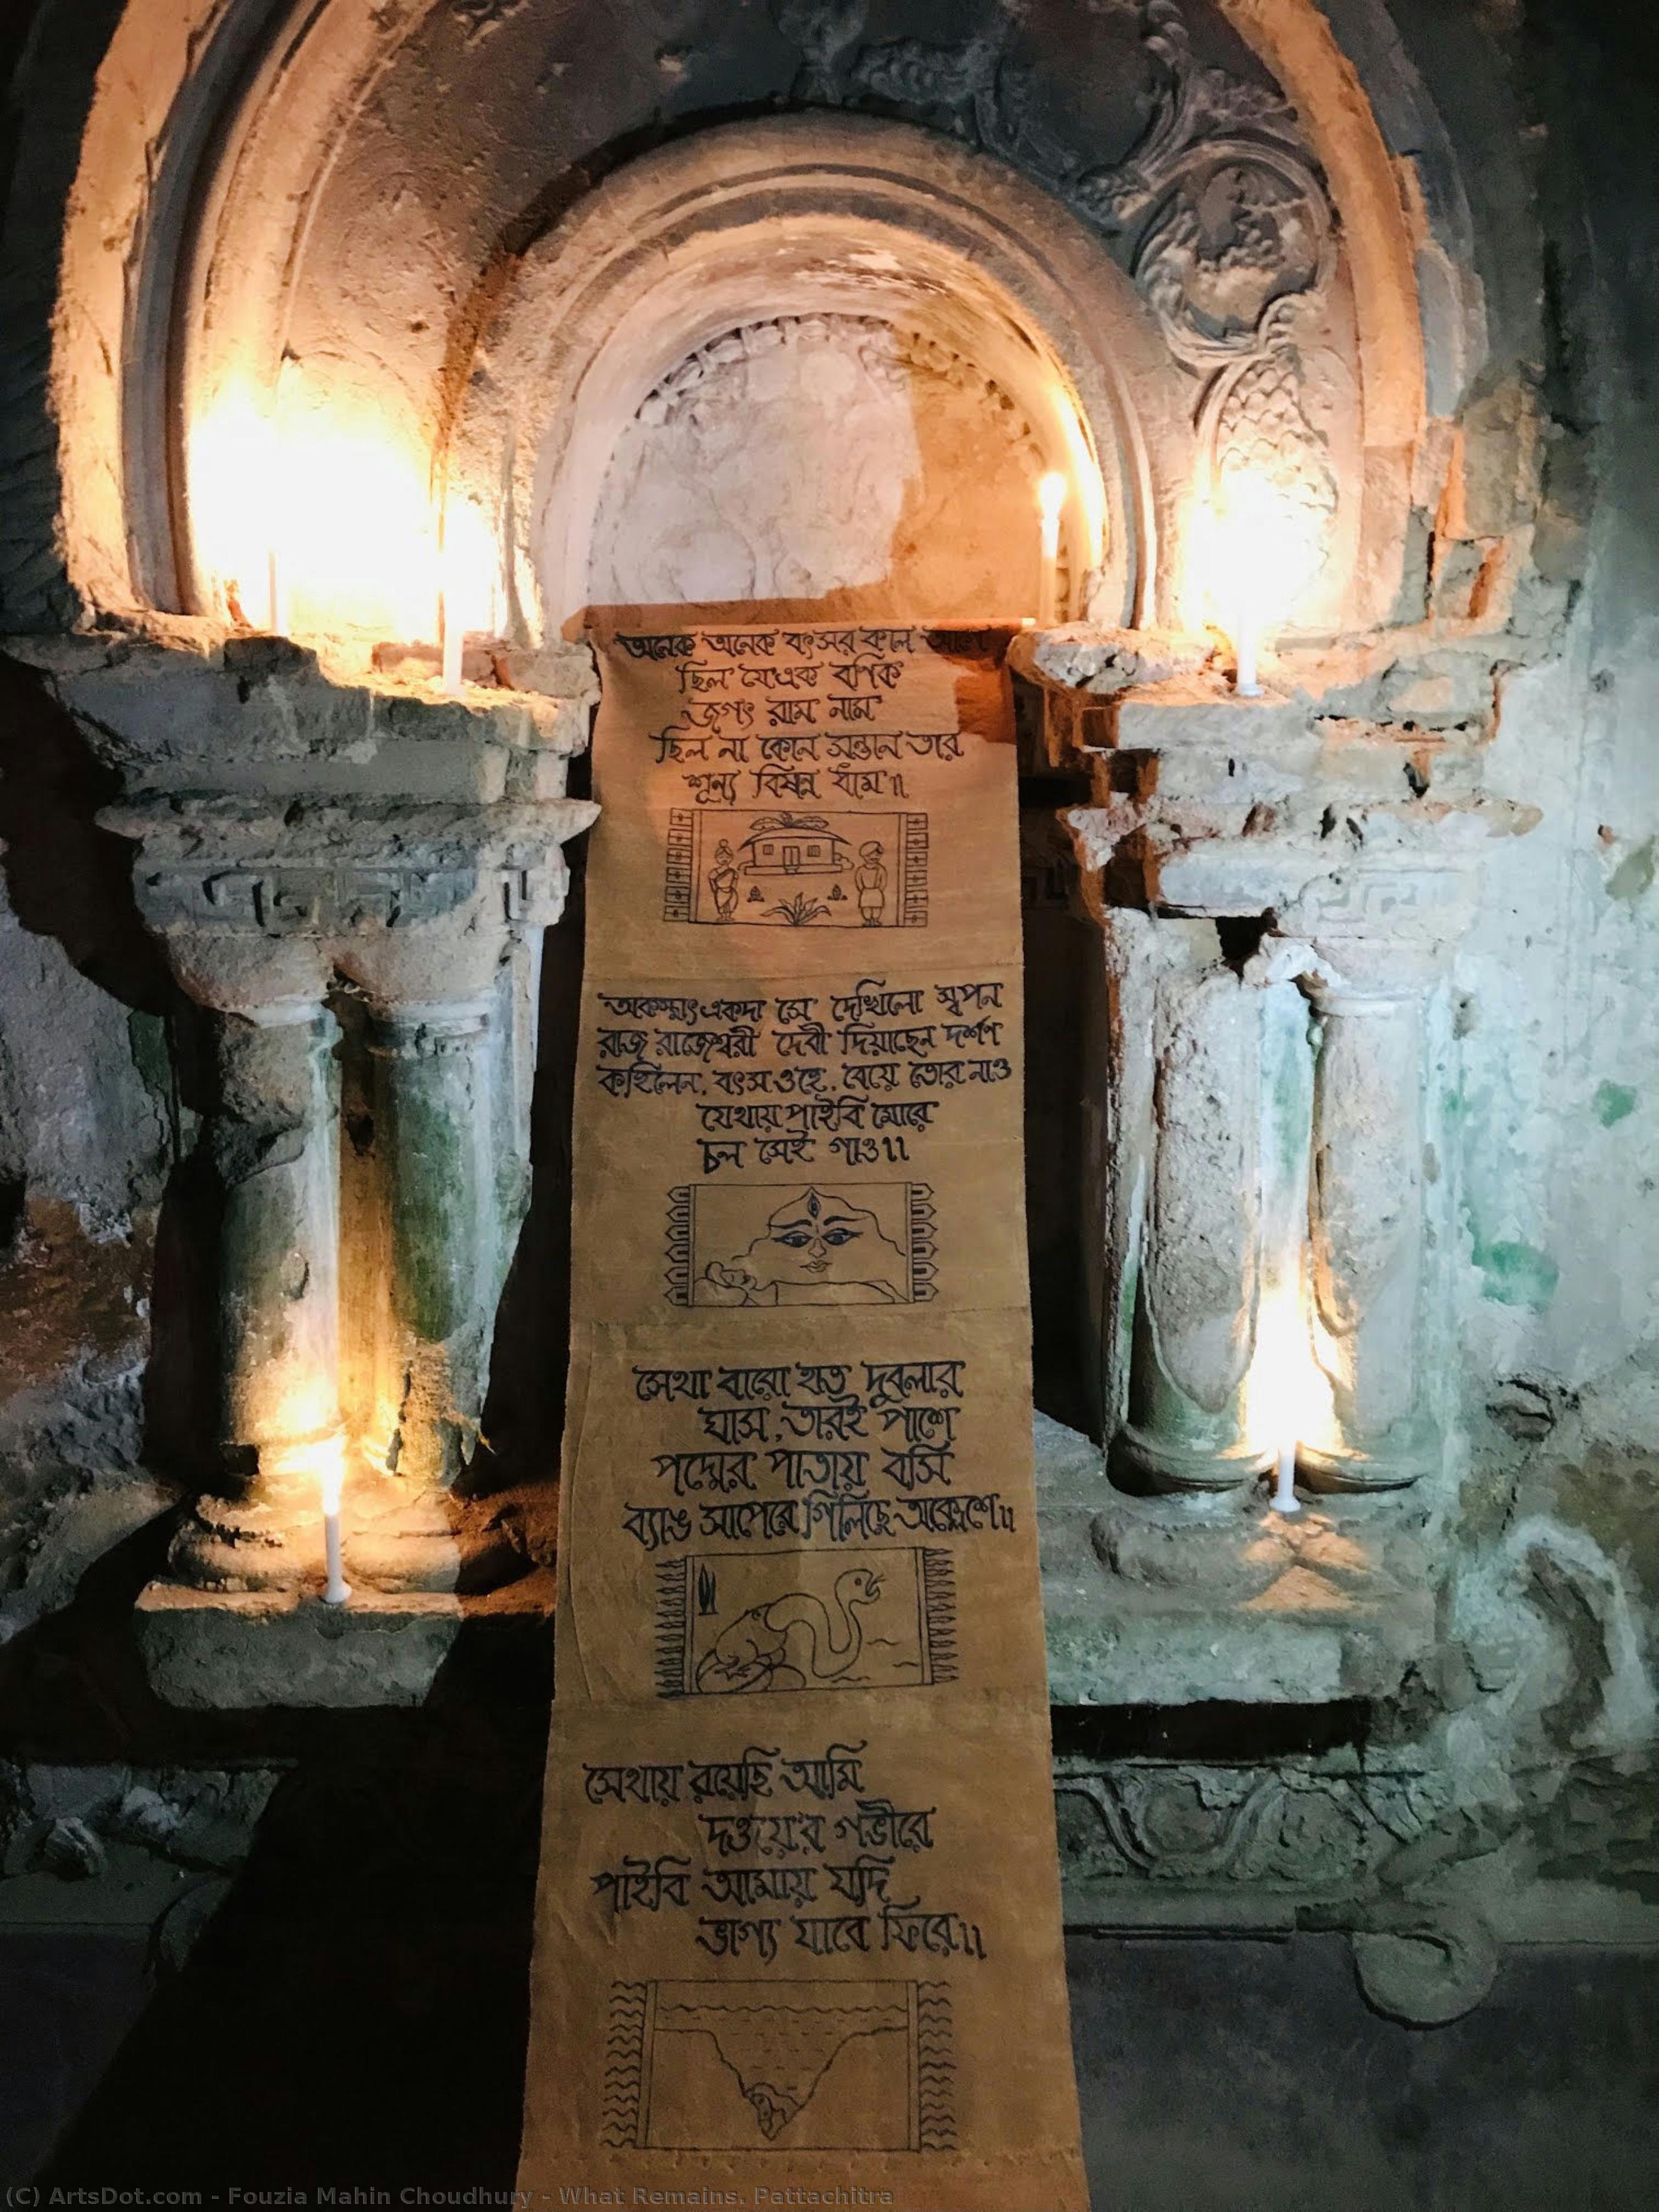 অনেক অনেক বৎসর কাল আগে
ছিল যে এক বণিক
জগৎ রাম নাম
ছিল না কোন সন্তান তার
শূন্য বিষন্ন ধাম৷৷
অকস্মাৎ একদা সে দেখিলো স্বপন
রাজ রাজেশ্বরী দেবী দিয়াছেন দর্শণ
কহিলেন, বৎস ওহে, বেয়ে তোর নাও
যেথায় পাইবি মোরে
চল সেই গাও৷৷
সেথা বারো হাত দুবলার
ঘাস, তারই পাশে
পদ্মের পাতায় বসি
ব্যাঙ সাপেরে গিলিছে অক্লেশে৷৷
সেথায় রয়েছি আমি
দওয়ের গভীরে
পাইবি আমায় যদি
ভাগ্য যাবে ফিরে৷৷
(C) ArtsDot.com - Fouzia Mahin Choudhury - What Remains. Pattachitra